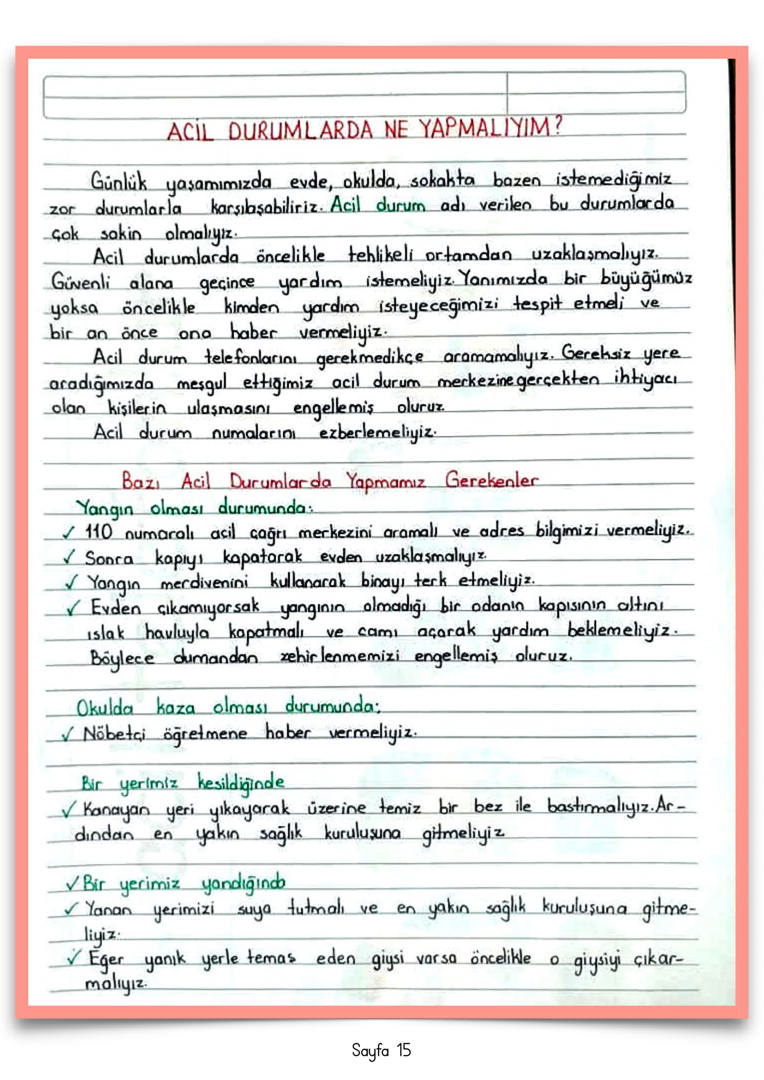 ACİL DURUMLARDA NE YAPMALIYIM?
Günlük yaşamımızda evde, okulda, sokakta bazen istemediğimiz
zor durumlarla karşılaşabiliriz. Acil durum adı verilen bu durumlarda
çok sakin olmalıyız.
Acil durumlarda öncelikle tehlikeli ortamdan uzaklaşmalıyız.
Güvenli alana geçince yardım istemeliyiz. Yanımızda bir büyüğümüz
yoksa öncelikle kimden yardım isteyeceğimizi tespit etmeli ve
bir an önce ona haber vermeliyiz.
Acil durum telefonlarını gerekmedikçe aramamalıyız. Gereksiz yere
aradığımızda meşgul ettiğimiz acil durum merkezine gerçekten ihtiyacı
olan kişilerin ulaşmasını engellemiş oluruz
Acil durum numalarını ezberlemeliyiz.
Bazı Acil Durumlarda Yapmamız Gerekenler
Yangın olması durumunda:
✓ 110 numaralı acil çağrı merkezini aramalı ve adres bilgimizi vermeliyiz.
✓ Sonra kapıyı kapatarak evden uzaklaşmalıyız.
✓ Yangın merdivenini kullanarak binayı terk etmeliyiz.
✓ Evden çıkamıyorsak yangının olmadığı bir odanın kapısının altını
ıslak havluyla kapatmalı ve camı açarak yardım beklemeliyiz.
Böylece dumandan zehirlenmemizi engellemiş oluruz.
Okulda kaza olması durumunda;
✓ Nöbetçi öğretmene haber vermeliyiz.
Bir yerimiz kesildiğinde
✓ Kanayan yeri yıkayarak üzerine temiz bir bez ile bastırmalıyız. Ar-
dından en yakın sağlık kuruluşuna gitmeliyiz
✓ Bir yerimiz yandığında
✓ Yanan yerimizi suya tutmalı ve en yakın sağlık kuruluşuna gitme-
liyiz.
✓ Eğer yanık yerle temas eden giysi varsa öncelikle o giysiyi çıkar-
malıyız.
Sayfa 15